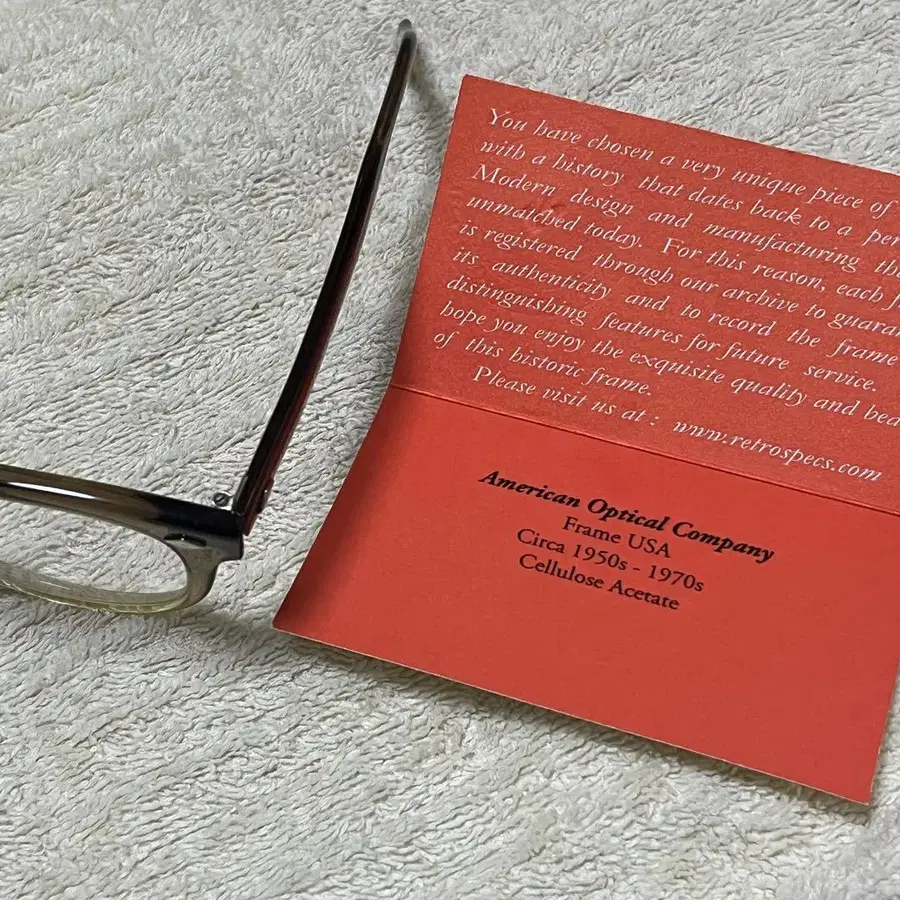 You have chosen a very unique piece of
with a history that dates back to a
Modern design and manufacturing
unmatched today. For this reason, each
is registered through our archive to
its authenticity and to record the frame
distinguishing features for future service.
hope you enjoy the exquisite quality and
of this historic frame.
Please visit us at : www.retrospecs.com
American Optical Company
Frame USA
Circa 1950s - 1970s
Cellulose Acetate